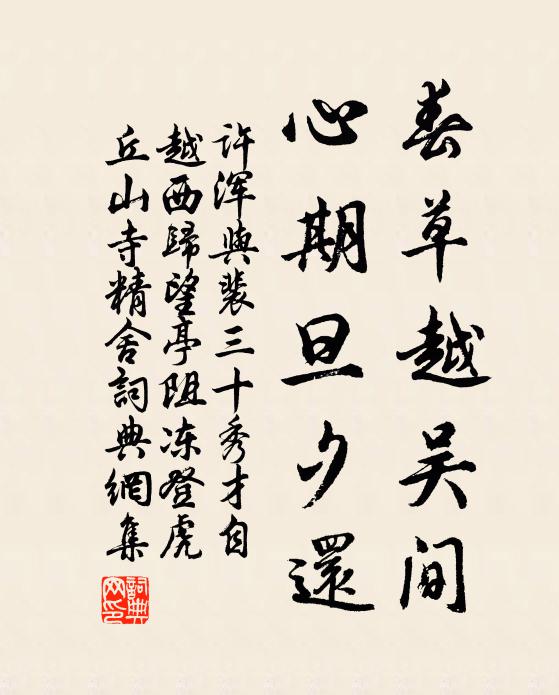 春草越吴间
心期旦夕還
許渾與裴三十秀才自
越西歸望亭阻冻登虎
丘山寺精舍詞典網集
詞典
网印